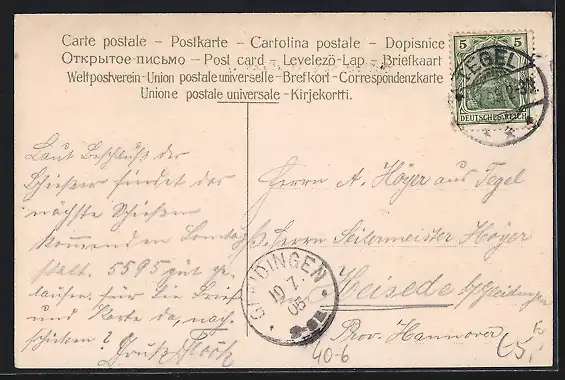 Carte postale – Postkarte – Cartolina postale – Dopisnice
Открытое письмо – Post card – Levelezö-Lap – Briefkaart
Weltpostverein-Union postale universelle-Brefkort-Correspondenzkarte
Unione postale universale-Kirjekortti.
5 5
DEUTSCHES REICH
TEGEL
Laut Beschluß der
Schießer findet das
nächste Schießen
kommenden Sonntag
statt. 5595 gut ge-
laufen. für die Brief
und Karte da, nach-
schicken?
Gruß
Herrn A. Höyer aus Tegel
Herrn Seilermeister Höyer
Heisede b/Gleidingen
Prov. Hannover
GLEIDINGEN
19 7
05
40-6